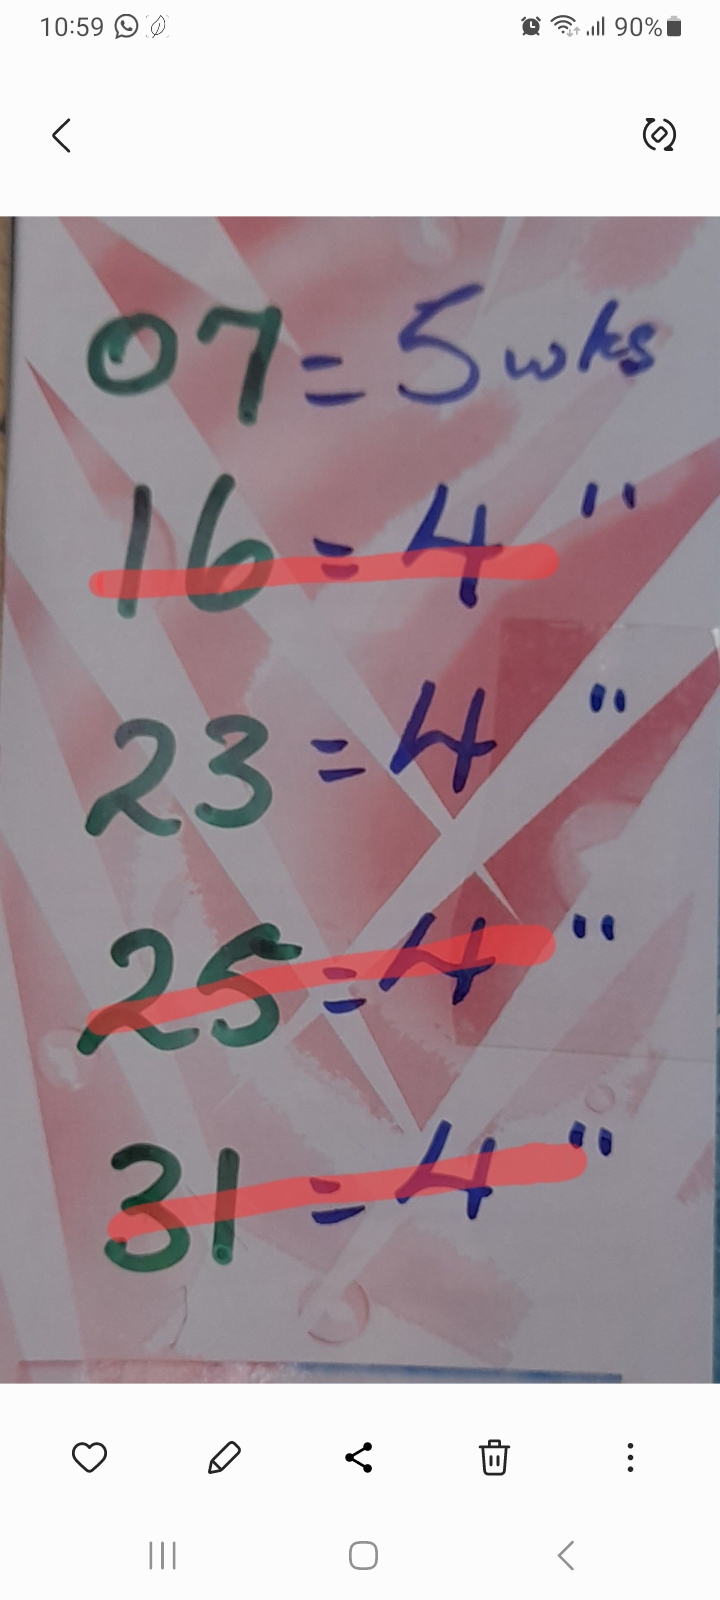 10:59 90%
07 = 5 wks
16 = 4 "
23 = 4 "
25 = 4 "
31 = 4 "